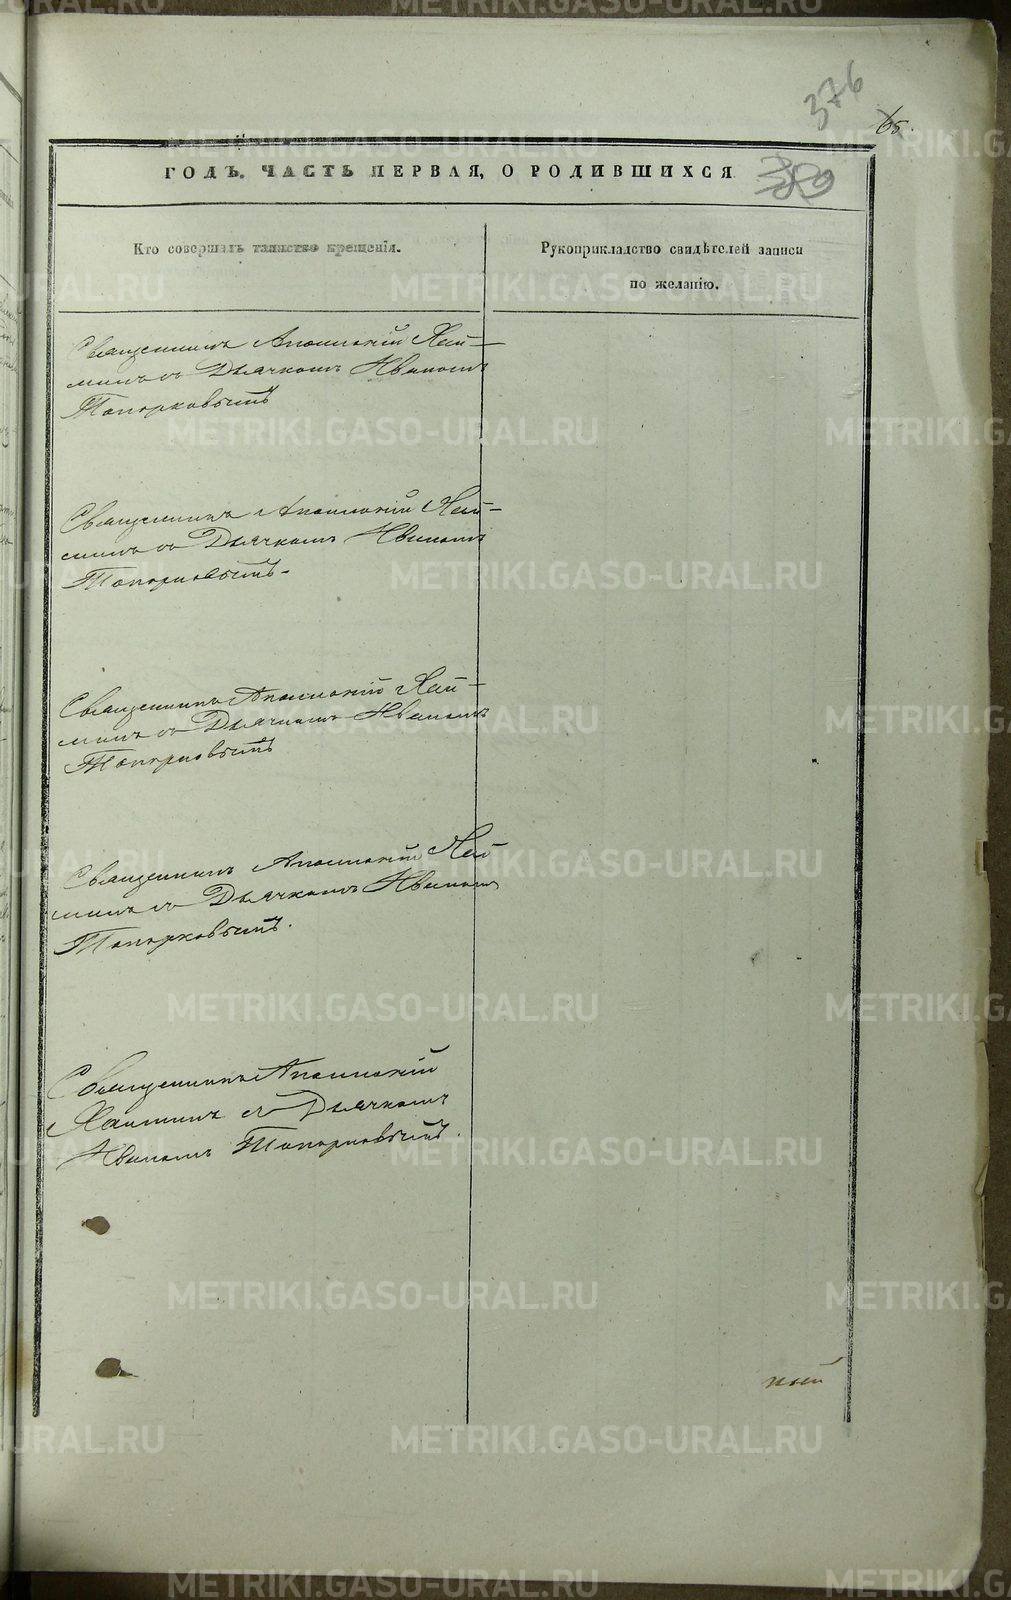 376
65.
ГОДЪ. ЧАСТЬ ПЕРВАЯ, О РОДИВШИХСЯ
Кто совершалъ таинство крещенія.
Рукоприкладство свидѣтелей записи
по желанію.
Священникъ Аполлоній Хай-
минъ съ Дьячкомъ Иваномъ
Топорковымъ
Священникъ Аполлоній Хай-
минъ съ Дьячкомъ Иваномъ
Топорковымъ-
Священникъ Аполлоній Хай-
минъ съ Дьячкомъ Иваномъ
Топорковымъ
Священникъ Аполлоній Хай
минъ съ Дьячкомъ Иваномъ
Топорковымъ.
Священникъ Аполлоній
Хайминъ съ Дьячкомъ
Иваномъ Топорковымъ.
ный
METRIKI.GASO-URAL.RU